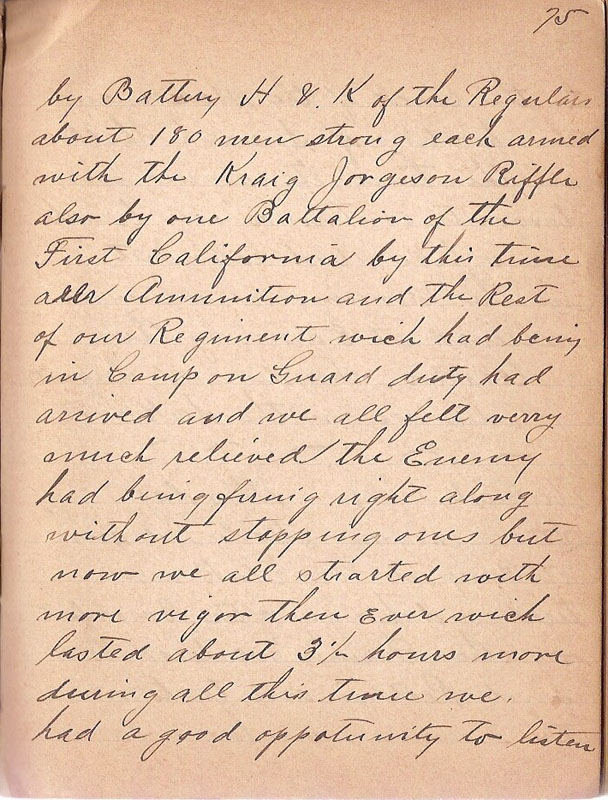 75
by Battery H & K of the Regulars
about 180 men strong each armed
with the Kraig Jorgeson Riffle
also by one Battalion of the
First California by this time
Ammunition and the Rest
of our Regiment wich had being
in Camp on Guard duty had
arrived and we all felt verry
much relieved the Enemy
had being firing right along
without stopping ones but
now we all strarted with
more vigor then Ever wich
lasted about 3½ hours more
during all this time we
had a good oppotunity to listen